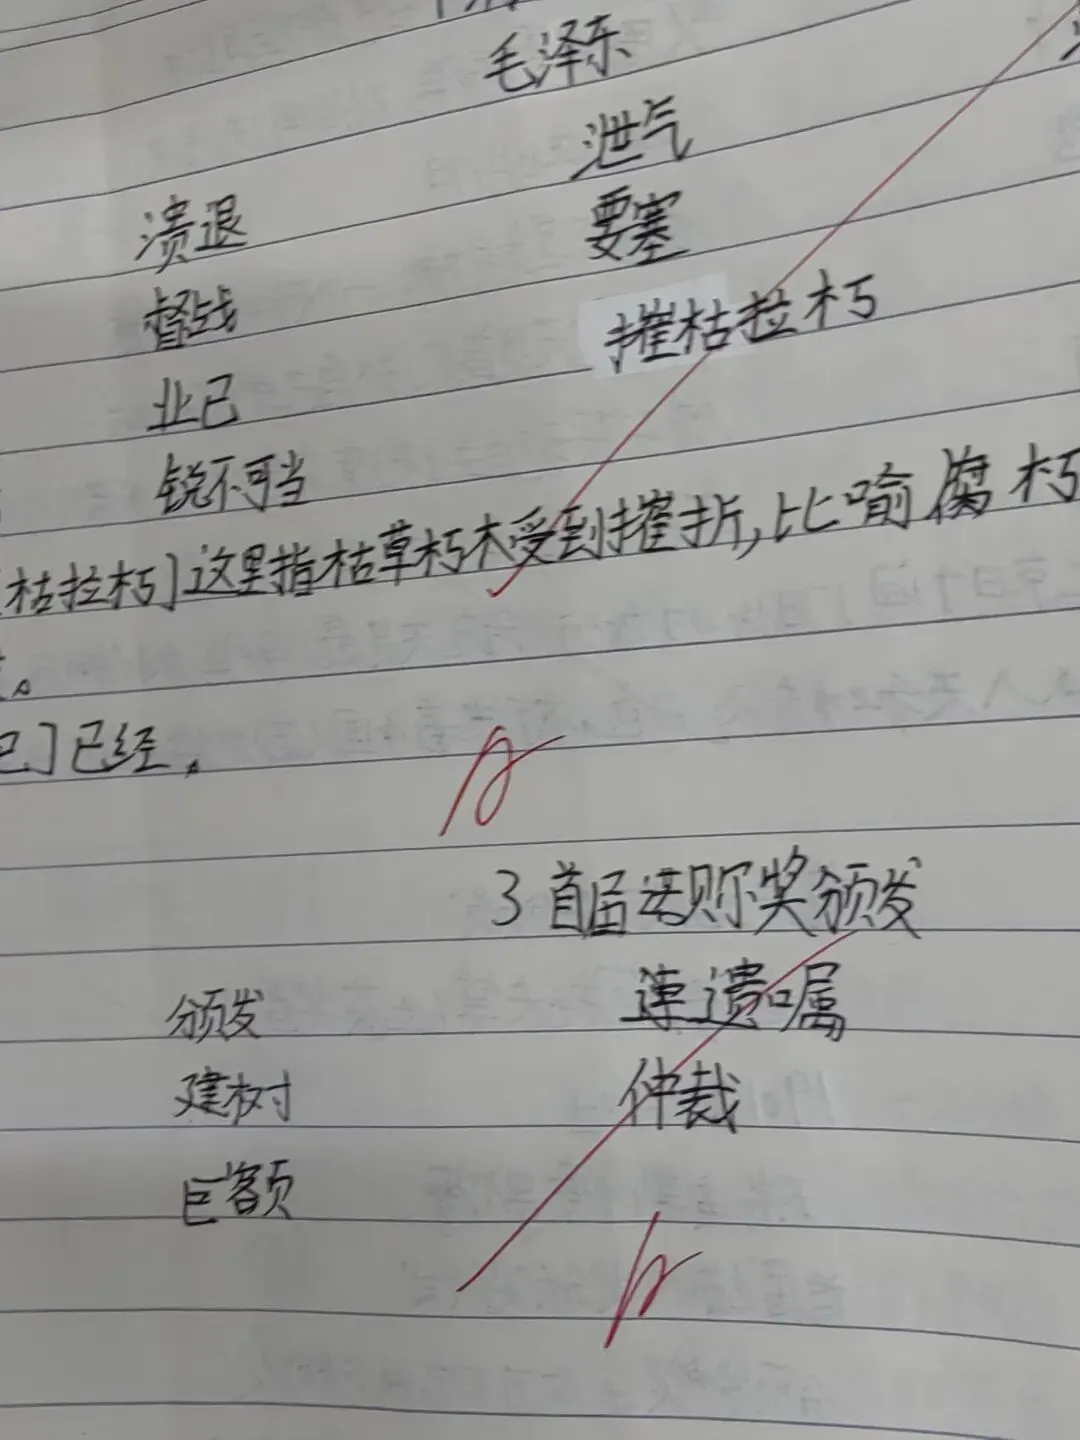 毛泽东
泄气
溃退 要塞
督战 摧枯拉朽
业已
锐不可当
枯拉朽]这里指枯草朽木受到摧折,比喻腐朽
。
已]已经。
3 首届诺贝尔奖颁发
颁发 遗嘱
建树 仲裁
巨额